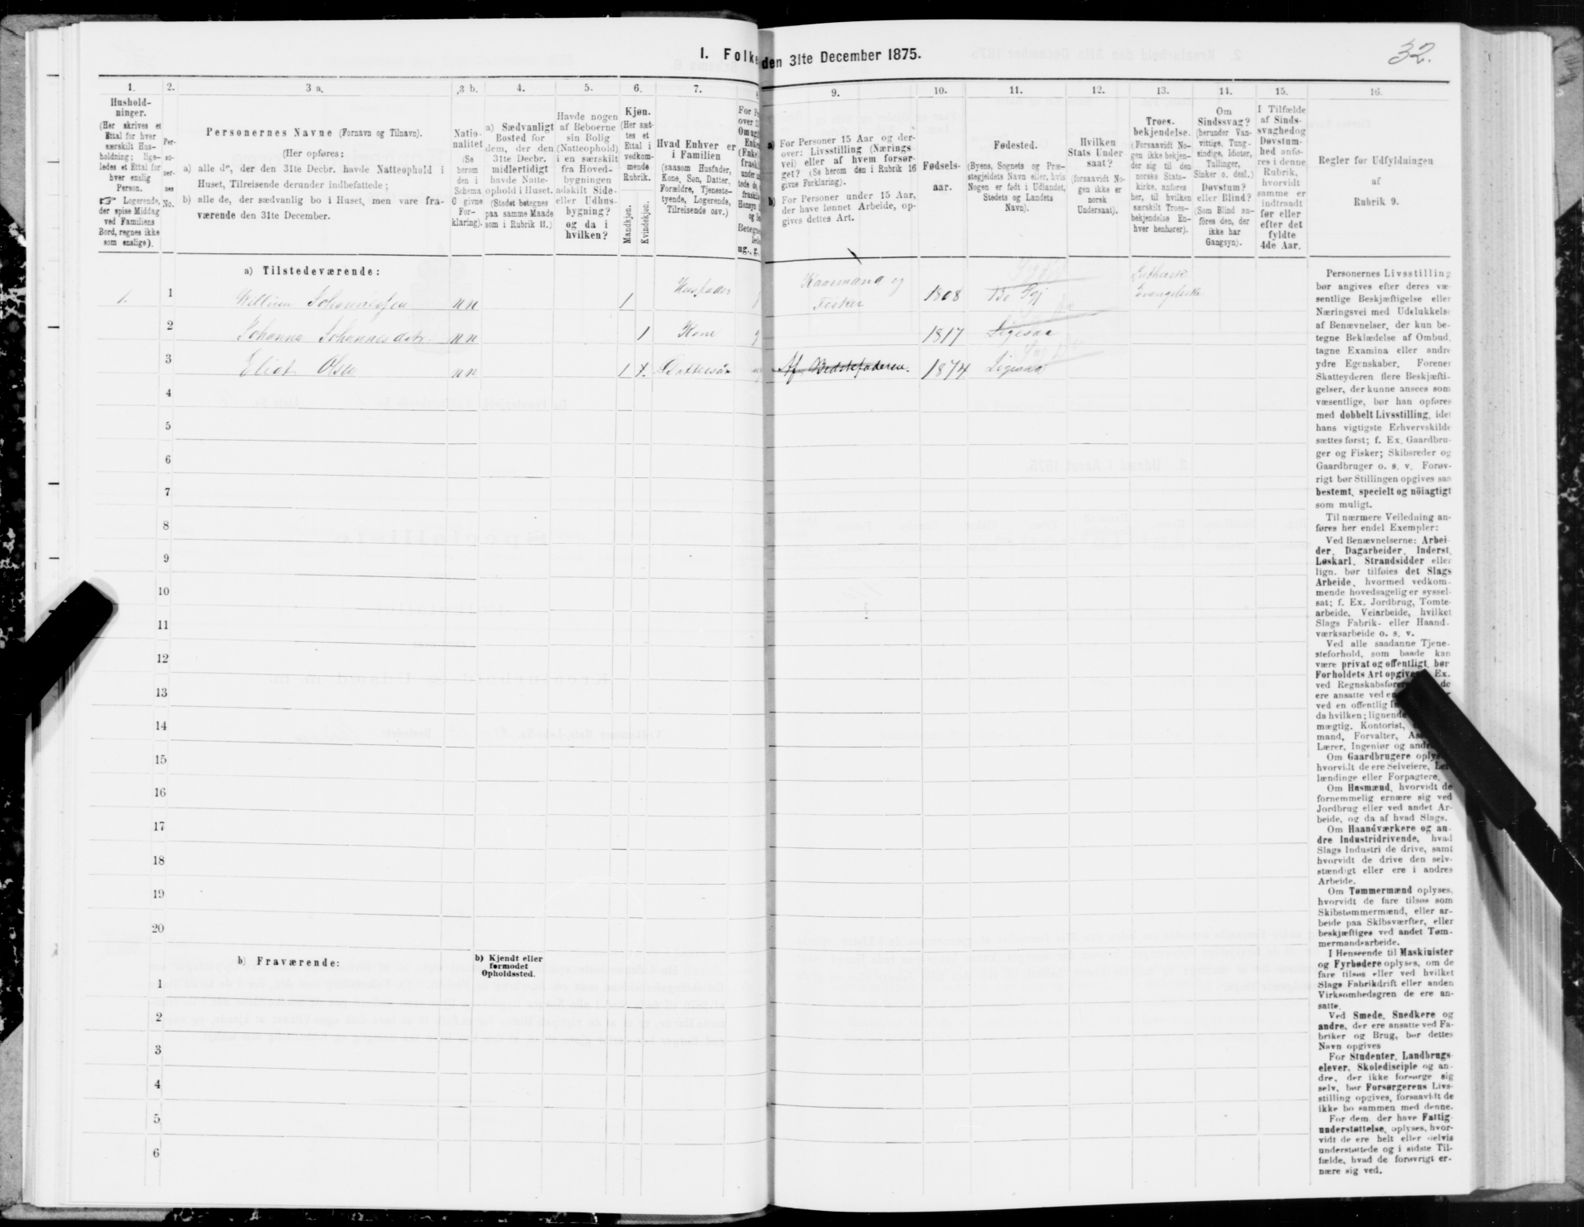 I. Folke den 31te December 1875.
32.
1. 2. 3 a. 3 b. 4. 5. 6. 7. 9. 10. 11. 12. 13. 14. 15. 16.
Hushold-
ninger.
(Her skrives et
Ettal for hver
særskilt Hus-
holdning; lige-
ledes et Ettal for
hver enslig
Person.
☞ Logerende,
der spise Middag
ved Familiens
Bord, regnes ikke
som enslige).
Per-
so-
ner-
nes
No.
Personernes Navne (Fornavn og Tilnavn).
(Her opføres:
a) alle de, der den 31te Decbr. havde Natteophold i
Huset, Tilreisende derunder indbefattede;
b) alle de, der sædvanlig bo i Huset, men vare fra-
værende den 31te December.
Natio-
nalitet
(Se
herom
den i
Schema
C givne
For-
klaring).
a) Sædvanligt
Bosted for
dem, der den
31te Decbr.
midlertidigt
havde Natte-
ophold i Huset.
(Stedet betegnes
paa samme Maade
som i Rubrik 11.)
Havde nogen
af Beboerne
sin Bolig
(Natteophold)
i en særskilt
fra Hoved-
bygningen
adskilt Side-
eller Udhus-
bygning?
og da i
hvilken?
Kjøn.
(Her sæt-
tes et
Ettal i
vedkom-
mende
Rubrik.
Mandkjøn.
Kvindekjøn.
Hvad Enhver er
i Familien
(saasom Husfader,
Kone, Søn, Datter,
Forældre, Tjeneste-
tyende, Logerende,
Tilreisende osv.)
a) For Personer 15 Aar og der-
over: Livsstilling (Nærings-
vei) eller af hvem forsør-
get? (Se herom den i Rubrik 16
givne Forklaring).
b) For Personer under 15 Aar,
der have lønnet Arbeide, op-
gives dettes Art.
Fødsels-
aar.
Fødested.
(Byens, Sognets og Præ-
stegjeldets Navn eller, hvis
Nogen er født i Udlandet,
Stedets og Landets
Navn).
Hvilken
Stats Under
saat?
(forsaavidt No-
gen ikke er
norsk
Undersaat).
Troes-
bekjendelse.
(Forsaavidt No-
gen ikke bekjen-
der sig til den
norske Stats-
kirke, anføres
her, til hvilken
særskilt Troes-
bekjendelse En-
hver henhører).
Om
Sindssvag?
(herunder Van-
vittige, Tung-
sindige, Idioter,
Tullinger,
Sinker o. desl.)
Døvstum?
eller Blind?
(Som Blind an-
føres den, der
ikke har
Gangsyn).
I Tilfælde
af Sinds-
svaghedog
Døvstum-
hed anfø-
res i denne
Rubrik,
hvorvidt
samme er
indtraadt
før eller
efter det
fyldte
4de Aar.
Regler for Udfyldningen
af
Rubrik 9.
a) Tilstedeværende:
1. 1 Johannessen nn 1 Husfader Kaarmand og Fisker 1808 Evangelisk
2 Johanna Johannesdatr nn 1 Kone 1817 Ligesaa
3 Olsen nn 1 Dattersøn Af Bedstefaderen. 1874 Ligesaa
4
5
6
7
8
9
10
11
12
13
14
15
16
17
18
19
20
b) Fraværende:
b) Kjendt eller
formodet
Opholdssted.
1
2
3
4
5
6
Personernes Livsstilling
bør angives efter deres væ-
sentlige Beskjæftigelse eller
Næringsvei med Udelukkelse
af Benævnelser, der kun be-
tegne Beklædelse af Ombud,
tagne Examina eller andre
ydre Egenskaber. Forener
Skatteyderen flere Beskjæfti-
gelser, der kunne ansees som
væsentlige, bør han opføres
med dobbelt Livsstilling, idet
hans vigtigste Erhvervskilde
sættes først; f. Ex. Gaardbru-
ger og Fisker; Skibsreder og
Gaardbruger o. s. v. Forøv-
rigt bør Stillingen opgives saa
bestemt, specielt og nöiagtigt
som muligt.
Til nærmere Veiledning an-
føres her endel Exempler:
Ved Benævnelserne: Arbei-
der, Dagarbeider, Inderst,
Løskarl, Strandsidder eller
lign. bør tilføies det Slags
Arbeide, hvormed vedkom-
mende hovedsagelig er syssel-
sat; f. Ex. Jordbrug, Tomte-
arbeide, Veiarbeide, hvilket
Slags Fabrik- eller Haand-
værksarbeide o. s. v.
Ved alle saadanne Tjene-
steforhold, som baade kan
være privat og offentligt, bør
Forholdets Art opgives Ex.
ved
ere ansatte ved
ved en offentlig
da hvilken; lignende
mægtig, Kontorist,
mand, Forvalter,
Lærer, Ingeniør og
Om Gaardbrugere oplyses
hvorvidt de ere Selveiere,
lændinge eller Forpagtere.
Om Husmænd, hvorvidt de
fornemmelig ernære sig ved
Jordbrug eller ved andet Ar-
beide, og da af hvad Slags.
Om Haandværkere og an-
dre Industridrivende, hvad
Slags Industri de drive, samt
hvorvidt de drive den selv-
stændigt eller ere i andres
Arbeide.
Om Tømmermænd oplyses,
hvorvidt de fare tilsøs som
Skibstømmermænd, eller ar-
beide paa Skibsværfter, eller
beskjæftiges ved andet Tøm-
mermandsarbeide.
I Henseende til Maskinister
og Fyrbødere oplyses, om de
fare tilsøs eller ved hvilket
Slags Fabrikdrift eller anden
Virksomhedsgren de ere an-
satte.
Ved Smede, Snedkere og
andre, der ere ansatte ved Fa-
briker og Brug, bør dettes
Navn opgives
For Studenter, Landbrugs-
elever, Skoledisciple og an-
dre, der ikke forsørge sig
selv, bør Forsørgerens Livs-
stilling opgives, forsaavidt de
ikke bo sammen med denne.
For dem der have Fattig-
understøttelse, oplyses, hvor-
vidt de ere helt eller delvis
understøttede og i sidste Til-
fælde, hvad de forøvrigt er-
nære sig ved.